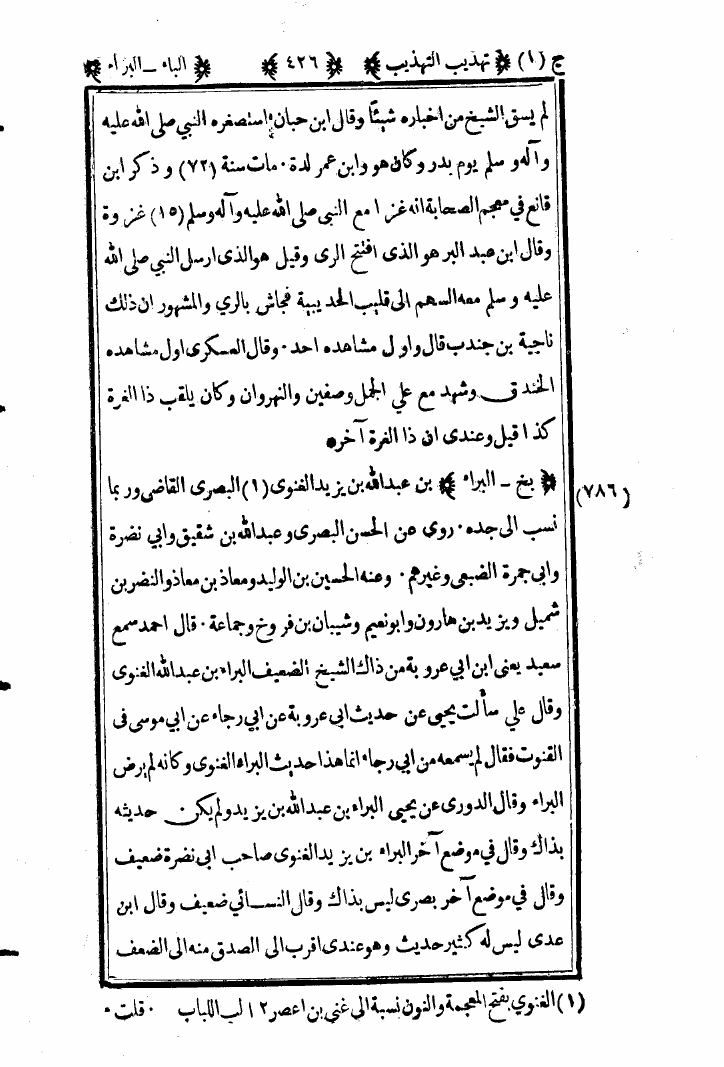 ج (١) ﴿ تهذيب التهذيب ﴾ ﴿ ٤٢٦ ﴾ ﴿ الباء ــ البراء ﴾
لم يسق الشيخ من اخباره شيئاً وقال ابن حبان استصغره النبي صلى الله عليه
وآله وسلم يوم بدر وكان هو وابن عمر لدة ٠ مات سنة (٧٢) وذكر ابن
قانع في معجم الصحابة انه غزا مع النبي صلى الله عليه وآله وسلم (١٥) غزوة
وقال ابن عبد البر هو الذى افتتح الرى وقيل هو الذى ارسل النبي صلى الله
عليه وسلم معه السهم الى قليب الحديبية فجاش بالري والمشهور ان ذلك
ناجية بن جندب قال واول مشاهده احد ٠ وقال العسكرى اول مشاهده
الخندق وشهد مع علي الجمل وصفين والنهروان وكان يلقب ذا الغرة
كذا قيل وعندى ان ذا الغرة آخر ٠
(٧٨٦) ﴿ بخ ــ البراء ﴾ بن عبدالله بن يزيد الغنوى (١) البصرى القاضى وربما
نسب الى جده ٠ روى عن الحسن البصرى وعبدالله بن شقيق وابي نضرة
وابى جمرة الضبعى وغيرهم ٠ وعنه الحسين بن الوليد ومعاذ بن معاذ والنضر بن
شميل ويزيد بن هارون وابو نعيم وشيبان بن فروخ وجماعة ٠ قال احمد سمع
سعيد يعنى ابن ابي عروبة من ذاك الشيخ الضعيف البراء بن عبدالله الغنوى
وقال علي سألت يحيى عن حديث ابى عروبة عن ابي رجاء عن ابي موسى فى
القنوت فقال لم يسمعه من ابي رجاء انما هذا حديث البراء الغنوى وكانه لم يرض
البراء وقال الدورى عن يحيى البراء بن عبدالله بن يزيد ولم يكن حديثه
بذاك وقال في موضع آخر البراء بن يزيد الغنوى صاحب ابى نضرة ضعيف
وقال في موضع آخر بصرى ليس بذاك وقال النسائي ضعيف وقال ابن
عدى ليس له كثير حديث وهو عندى اقرب الى الصدق منه الى الضعف
(١) الغنوي بفتح المعجمة والنون نسبة الى غني بن اعصر ١٢ لب اللباب ٠ قلت ٠